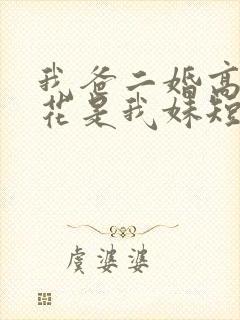 我爸二婚高
花是我妹短
虞婆婆